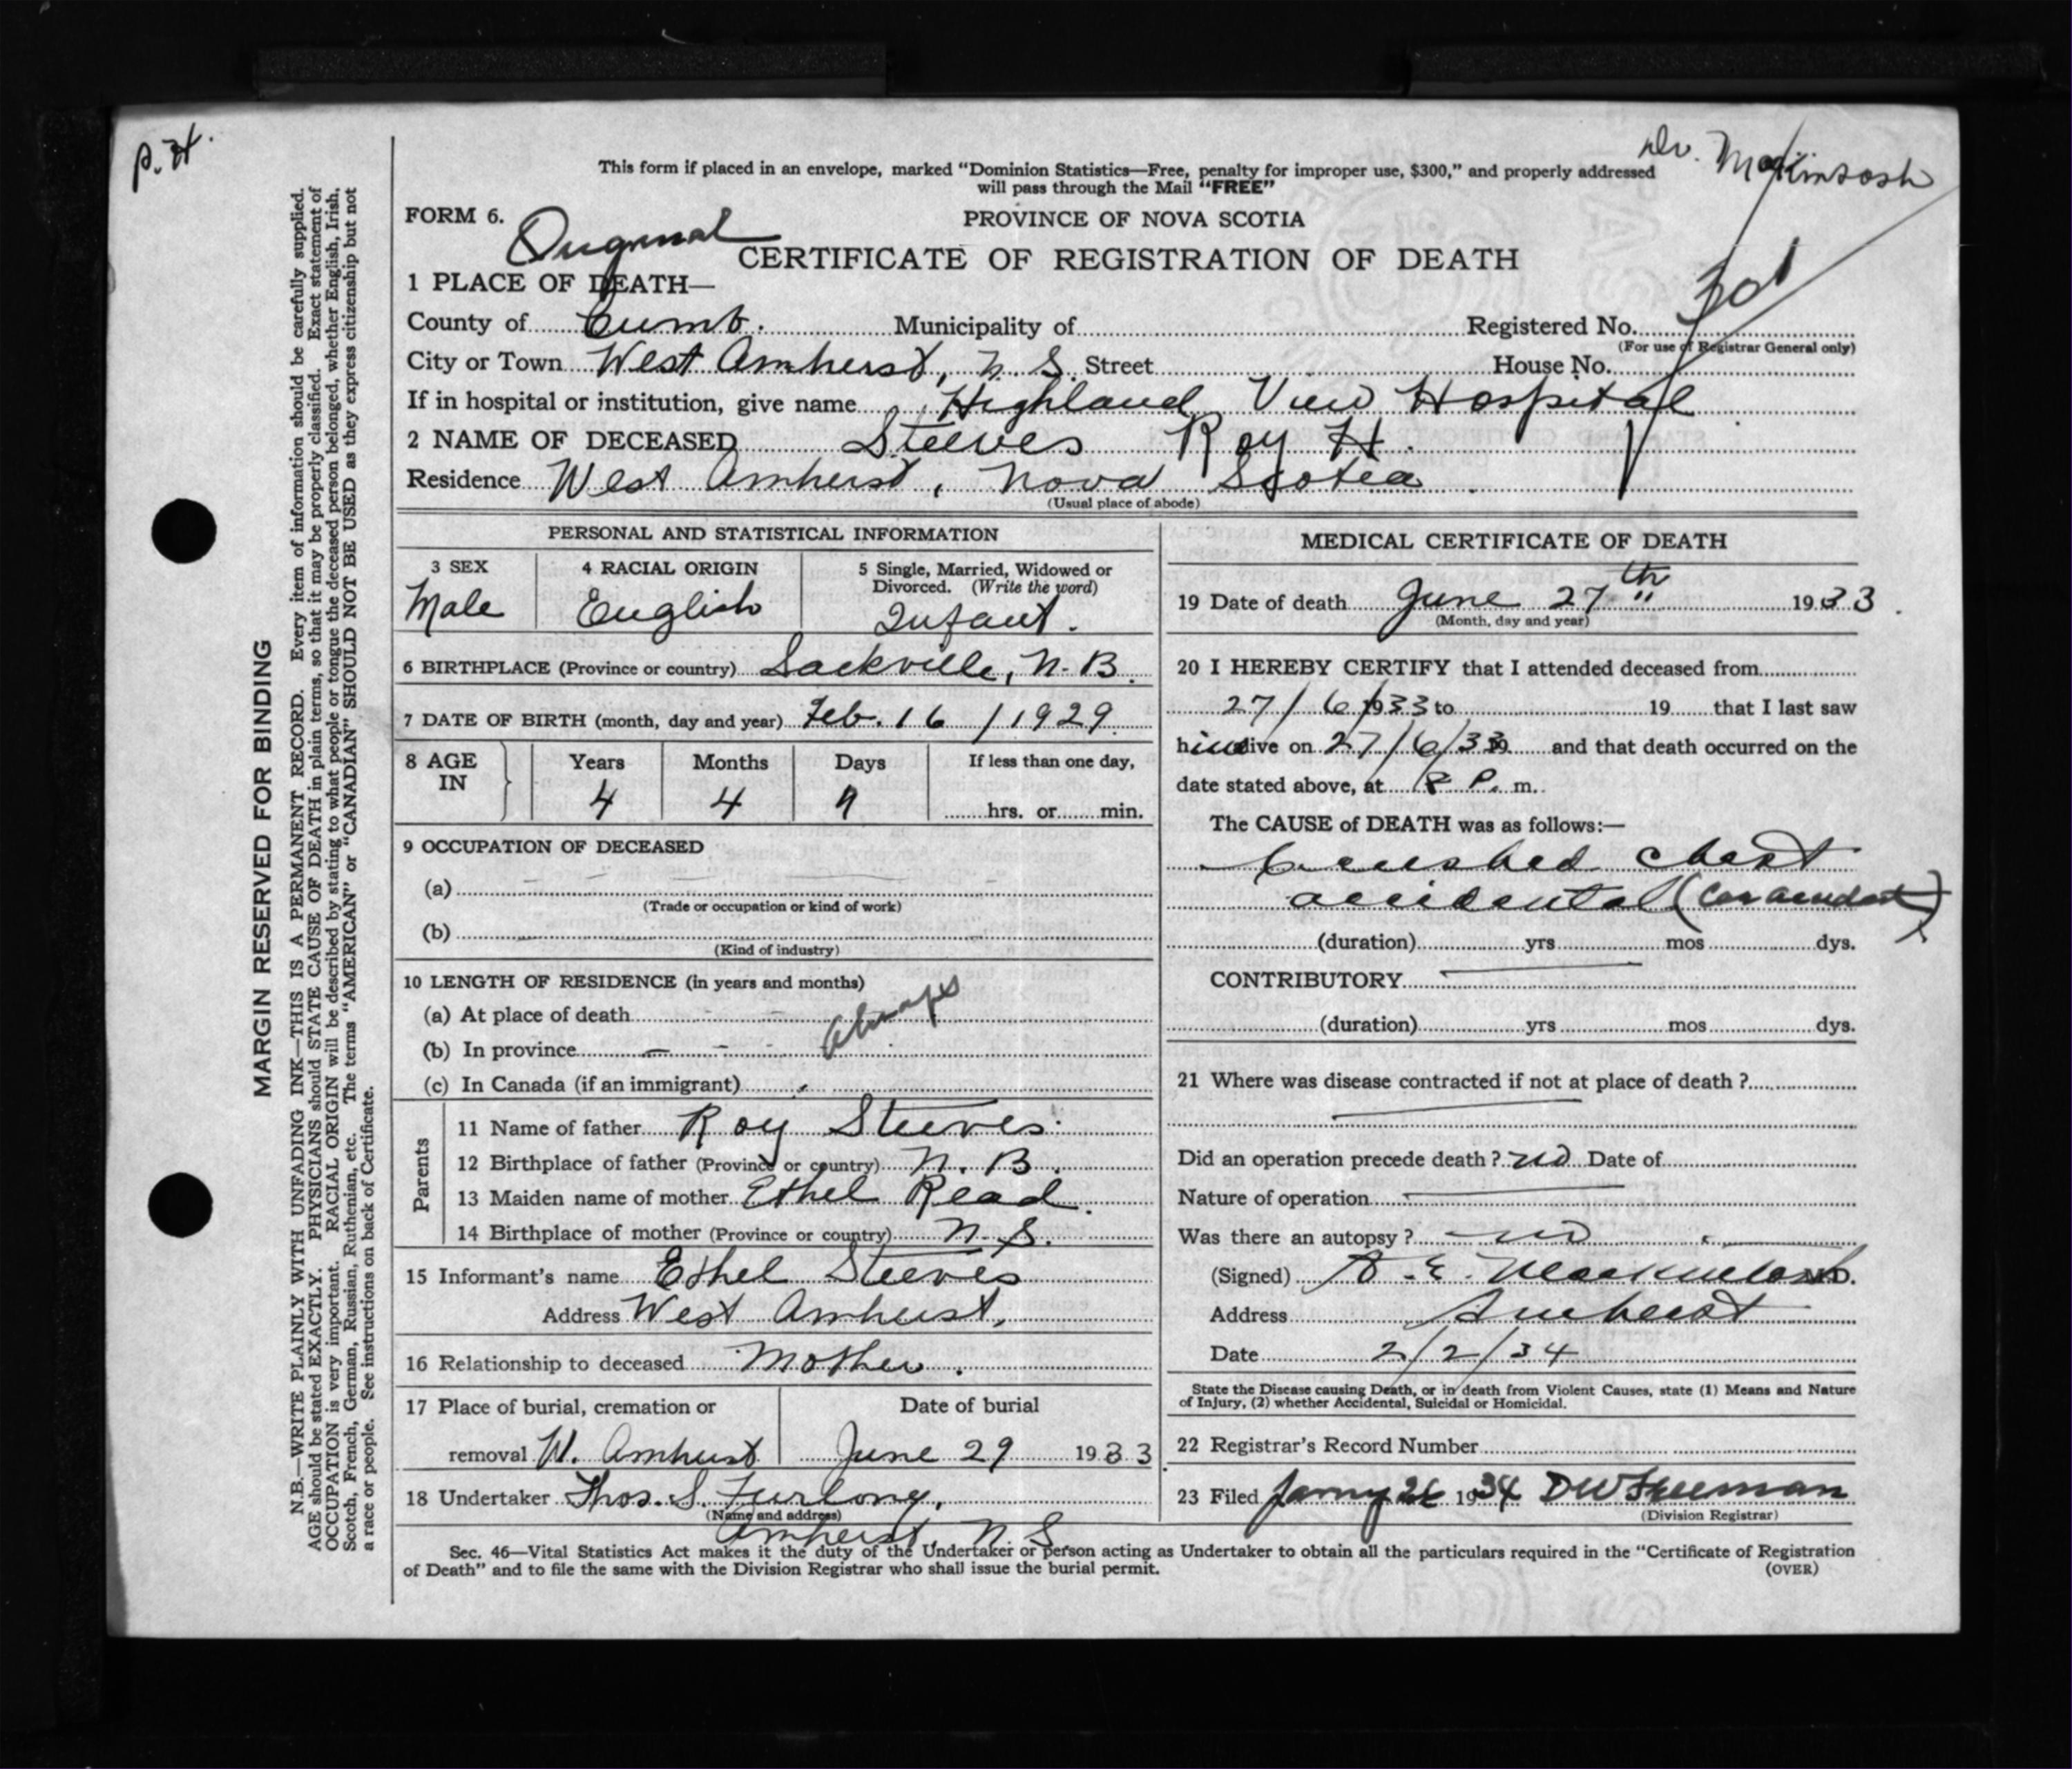 p. 34.
Dr. MacKintosh
This form if placed in an envelope, marked "Dominion Statistics—Free, penalty for improper use, $300," and properly addressed
will pass through the Mail "FREE"
FORM 6.
Original
PROVINCE OF NOVA SCOTIA
CERTIFICATE OF REGISTRATION OF DEATH
1 PLACE OF DEATH—
County of Cumb. Municipality of Registered No.
(For use of Registrar General only)
City or Town West Amherst, N. S. Street House No.
If in hospital or institution, give name Highland View Hospital
2 NAME OF DECEASED Steeves Roy H.
Residence West Amherst, Nova Scotia
(Usual place of abode)
PERSONAL AND STATISTICAL INFORMATION
3 SEX 4 RACIAL ORIGIN 5 Single, Married, Widowed or
Divorced. (Write the word)
Male English Infant.
6 BIRTHPLACE (Province or country) Sackville, N. B.
7 DATE OF BIRTH (month, day and year) Feb. 16 / 1929
8 AGE IN Years Months Days If less than one day,
4 4 9 hrs. or min.
9 OCCUPATION OF DECEASED
(a)
(Trade or occupation or kind of work)
(b)
(Kind of industry)
10 LENGTH OF RESIDENCE (in years and months)
(a) At place of death
always
(b) In province
(c) In Canada (if an immigrant)
Parents
11 Name of father Roy Steeves
12 Birthplace of father (Province or country) N. B.
13 Maiden name of mother Ethel Read.
14 Birthplace of mother (Province or country) N. S.
15 Informant's name Ethel Steeves
Address West Amherst,
16 Relationship to deceased Mother.
17 Place of burial, cremation or Date of burial
removal W. Amherst June 29 1933
18 Undertaker Thos. S. Furlong,
(Name and address)
Amherst, N. S.
MEDICAL CERTIFICATE OF DEATH
19 Date of death June 27th 1933
(Month, day and year)
20 I HEREBY CERTIFY that I attended deceased from
27/6/1933 to 19 that I last saw
him alive on 27/6/33 and that death occurred on the
date stated above, at 8 P. m.
The CAUSE of DEATH was as follows:—
Crushed chest
accidental (Car accident)
(duration) yrs mos dys.
CONTRIBUTORY
(duration) yrs mos dys.
21 Where was disease contracted if not at place of death?
Did an operation precede death? no Date of
Nature of operation
Was there an autopsy? no
(Signed) E. MacKintosh M.D.
Address Amherst
Date 2/2/34
State the Disease causing Death, or in death from Violent Causes, state (1) Means and Nature
of Injury, (2) whether Accidental, Suicidal or Homicidal.
22 Registrar's Record Number
23 Filed 1934 DW Freeman
(Division Registrar)
Sec. 46—Vital Statistics Act makes it the duty of the Undertaker or person acting as Undertaker to obtain all the particulars required in the "Certificate of Registration
of Death" and to file the same with the Division Registrar who shall issue the burial permit. (OVER)
MARGIN RESERVED FOR BINDING
N.B.—WRITE PLAINLY WITH UNFADING INK—THIS IS A PERMANENT RECORD. Every item of information should be carefully supplied.
AGE should be stated EXACTLY. PHYSICIANS should STATE CAUSE OF DEATH in plain terms, so that it may be properly classified. Exact statement of
OCCUPATION is very important. RACIAL ORIGIN will be described by stating to what people or tongue the deceased person belonged, whether English, Irish,
Scotch, French, German, Russian, Ruthenian, etc. The terms "AMERICAN" or "CANADIAN" SHOULD NOT BE USED as they express citizenship but not
a race or people. See instructions on back of Certificate.